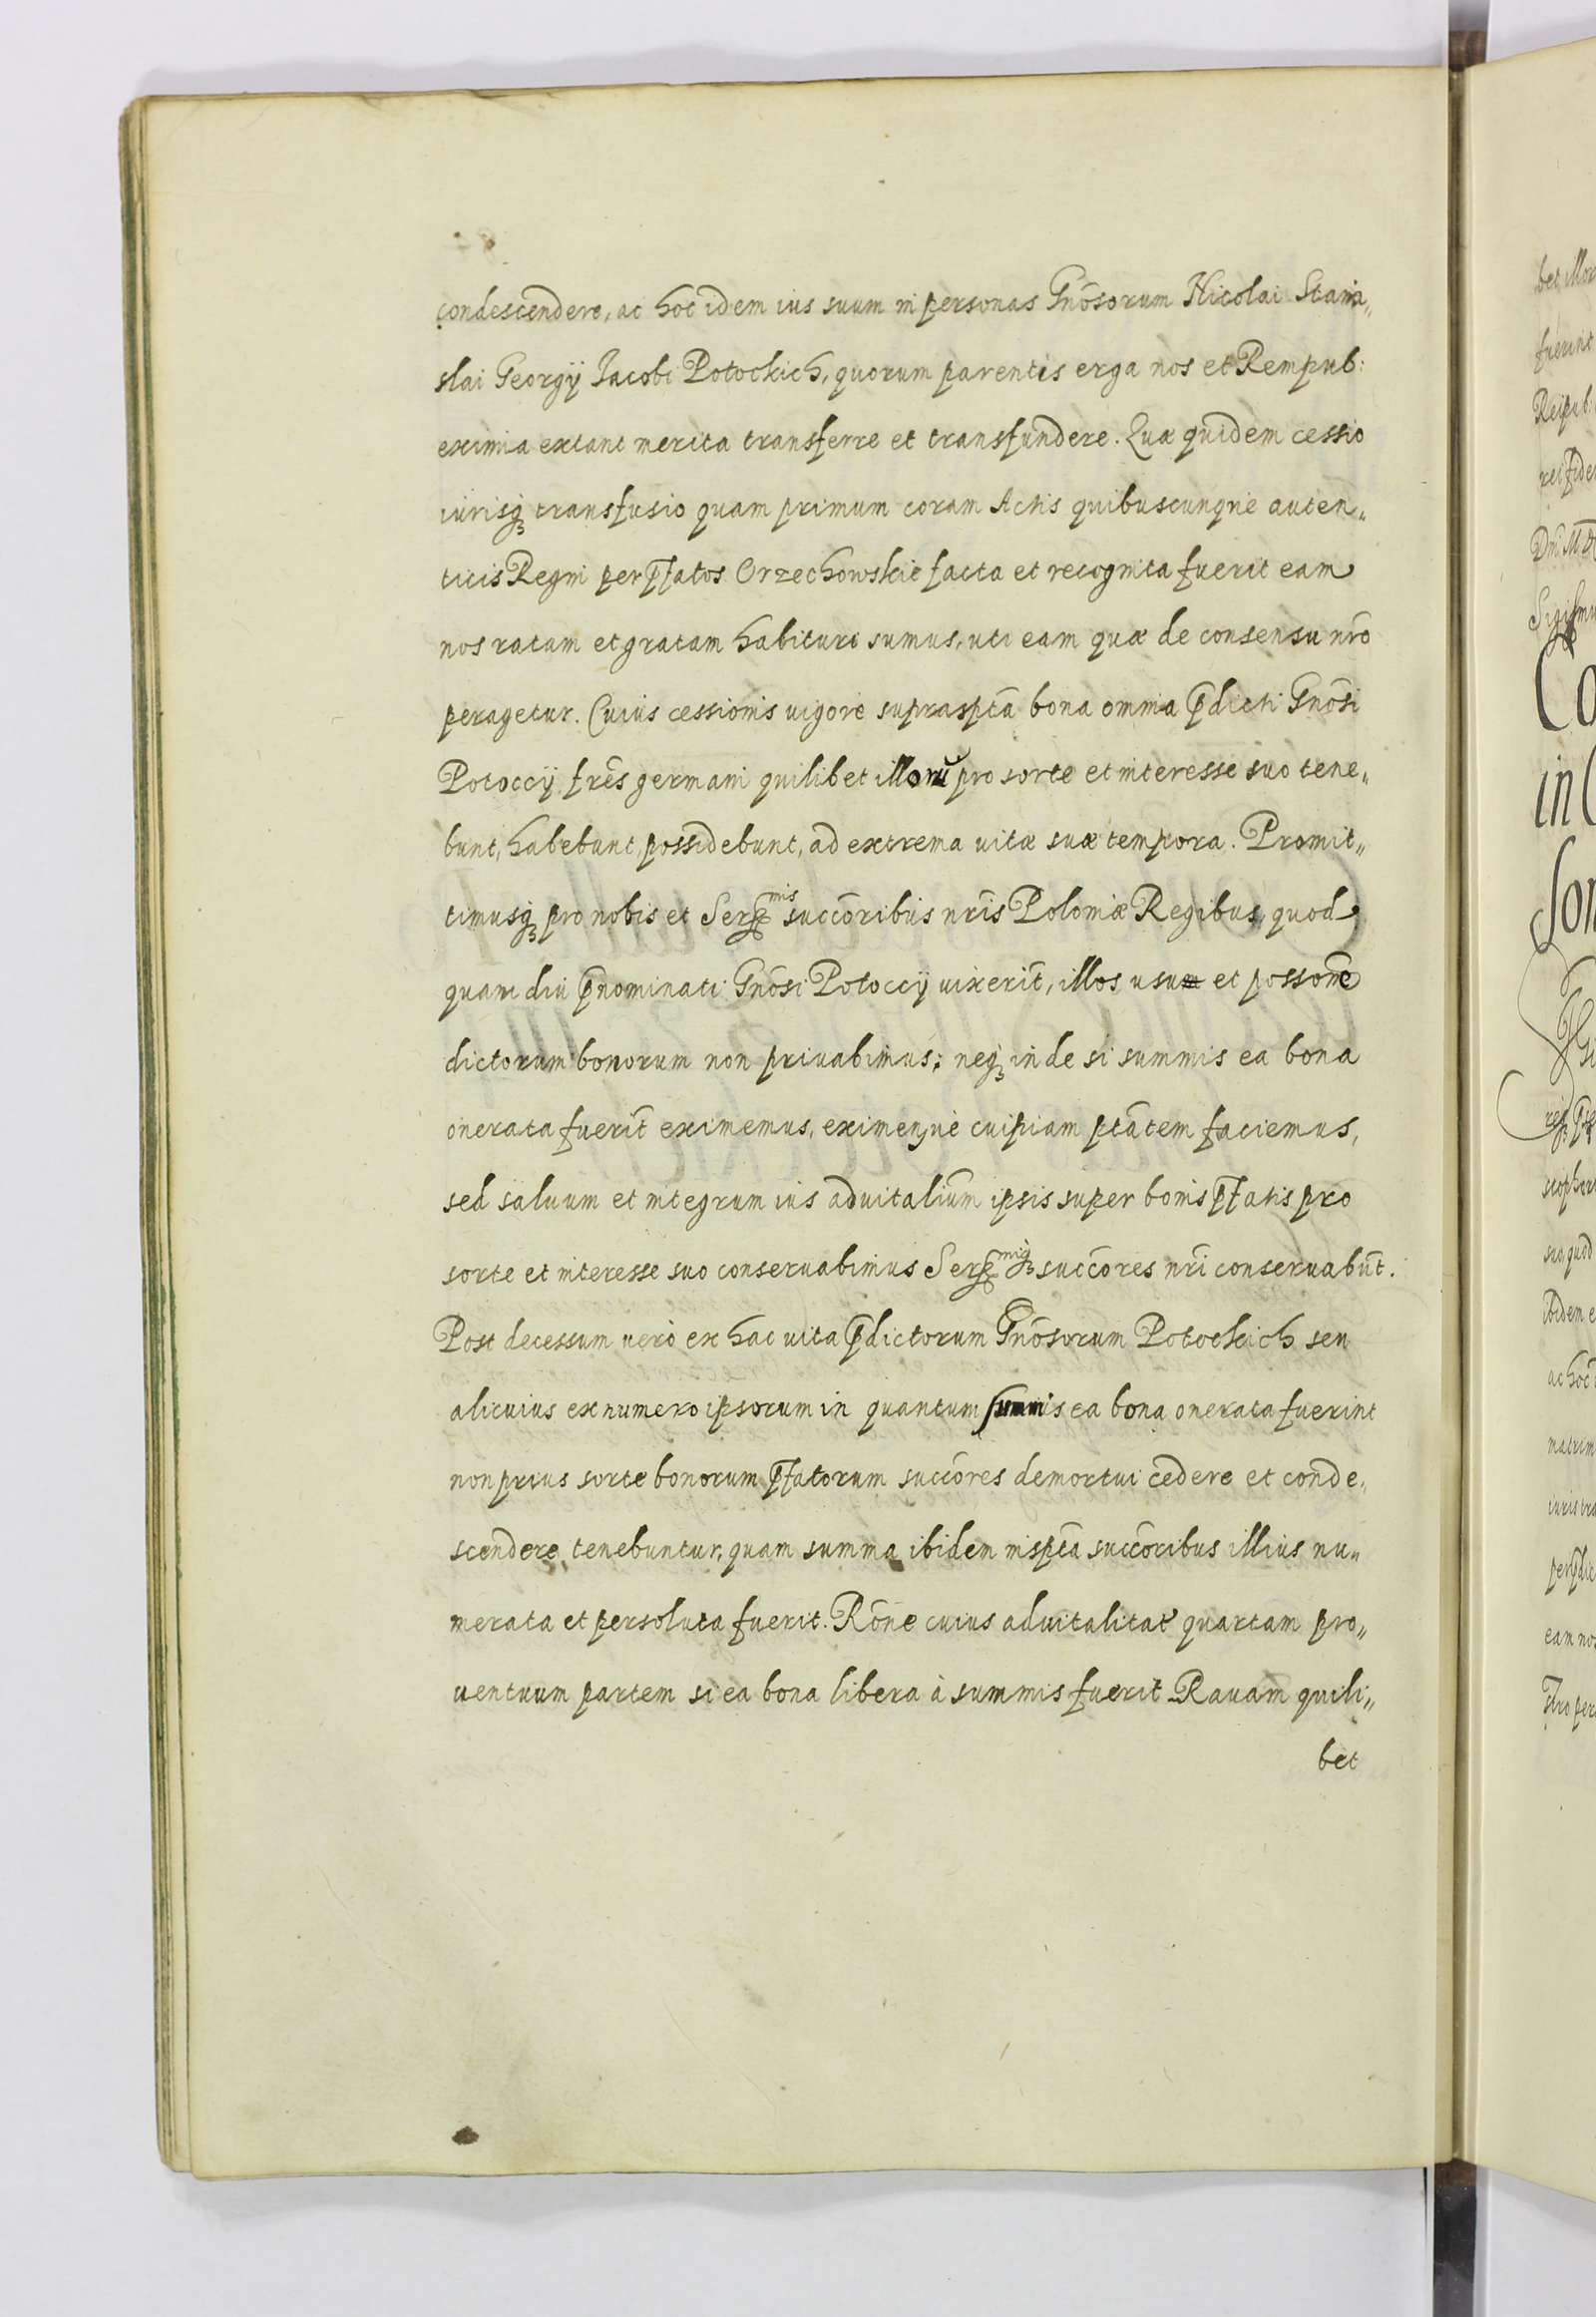 condescendere, ac hoc idem ius suum in personas Gnōsorum Nicolai Stani„
slai Georgÿ Iacobi Potockich, quorum parentis erga nos et Rempub:
eximia extant merita transferre et transfundere. Quæ quidem cessio
iurisq₃ transfusio quam primum coram Actis quibuscunque auten„
ticis Regni per p̄fatos Orzechowskie facta et recognita fuerit eam
nos ratam et gratam habituri sumus, uti eam quæ de consensu nr̄o
peragetur. Cuius cessionis uigore suprasptā bona omnia p̄dicti Gnōsi
Potoccÿ frēs germani quilibet illorū pro sorte et interesse suo tene„
bunt, habebunt, possidebunt, ad extrema uitæ suæ tempora. Promit„
timusq₃ pro nobis et Ser^mis succōribus nr̄is Poloniæ Regibus, quod
quam diu p̄nominati Gnōsi Potoccÿ uixerīt, illos usu et possonē
dictorum bonorum non priuabimus; neq₃ inde si summis ea bona
onerata fuerīt eximemus, eximenque cuipiam ptātem faciemus,
sed saluum et integrum ius aduitalium ipsis super bonis p̄fatis pro
sorte et interesse suo conseruabimus Ser^miq₃ succōres nr̄i conseruabūt.
Post decessum uerò ex hac uita p̄dictorum Gnōsorum Potockich seu
alicuius ex numero ipsorum in quantum summis ea bona onerata fuerint
non prius sorte bonorum p̄fatorum succōres demortui cedere et conde„
scendere tenebuntur, quam summa ibidem insptā succōribus illius nu„
merata et persoluta fuerit. Rōne cuius aduitalitat̄ quartam pro„
uentuum partem si ea bona libera à summis fuerīt Rauam quili„
bet